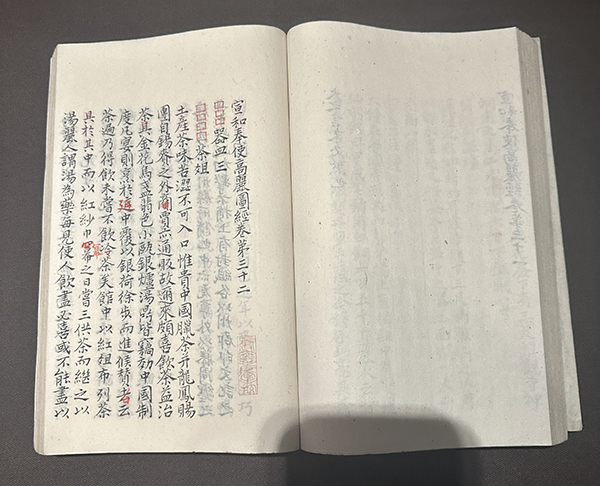 宣和奉使高麗圖經卷第三十二
器皿三
茶俎
土產茶味苦澀不可入口惟貴中國臘茶并龍鳳賜
團自錫賚之外賈亦通販故邇來頗喜飲茶益治
茶具金花烏盞翡色小甌銀爐湯鼎皆竊効中國制
度凡宴則烹於廷中覆以銀荷徐步而進候贊者云
茶遍乃得飲未嘗不飲冷茶矣館中以紅俎布列茶
具於其中而以紅紗巾冪之日嘗三供茶而繼之以
湯麗人謂湯為藥每見使人飲盡必喜或不能盡以